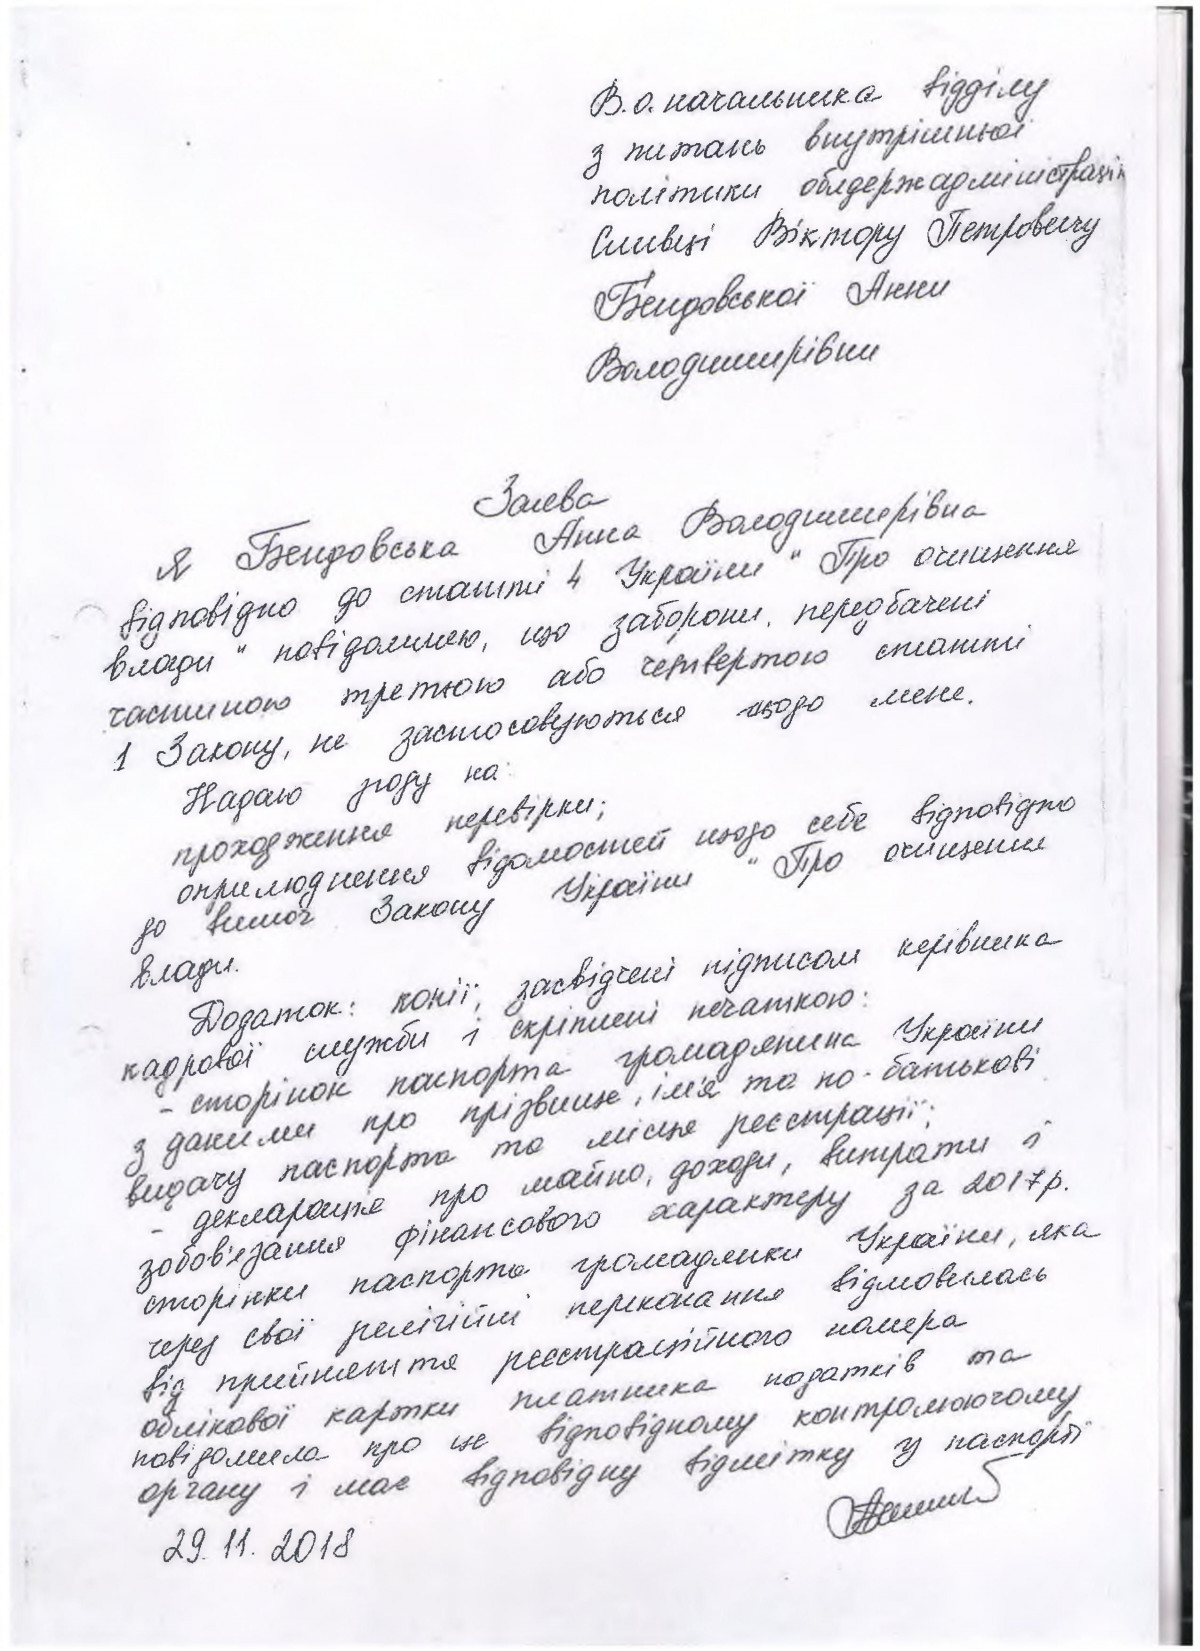 В.о. начальника відділу
з питань внутрішньої
політики облдержадміністрації
Сливці Віктору Петровичу
Бендовської Анни
Володимирівни
Заява
Я Бендовська Анна Володимирівна
відповідно до статті 4 України "Про очищення
влади" повідомляю, що заборони, передбачені
частиною третьою або четвертою статті
1 Закону, не застосовуються щодо мене.
Надаю згоду на:
проходження перевірки;
оприлюднення відомостей щодо себе відповідно
до вимог Закону України "Про очищення
влади.
Додаток: копії, засвідчені підписом керівника
кадрової служби і скріплені печаткою:
- сторінок паспорта громадянина України
з даними про прізвище, ім'я та по-батькові
видачу паспорта та місце реєстрації;
- декларація про майно, доходи, витрати і
зобов'язання фінансового характеру за 2017р.
сторінки паспорта громадянки України, яка
через свої релігійні переконання відмовилась
від прийняття реєстраційного номера
облікової картки платника податків та
повідомила про це відповідному контролюючому
органу і має відповідну відмітку у паспорті
29.11.2018